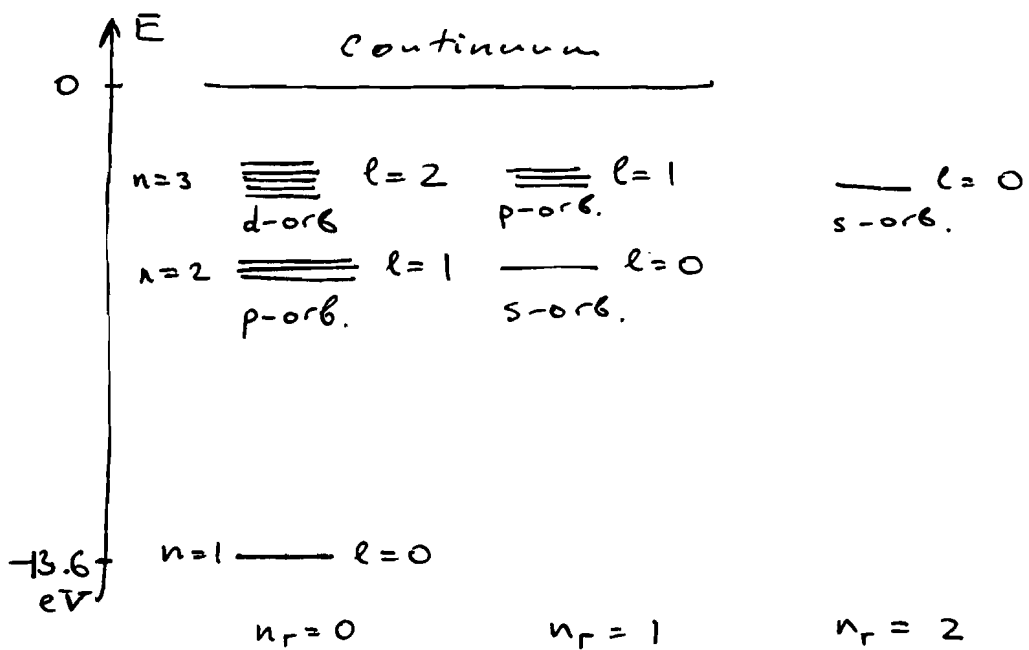 E
continuum
0
n=3 l=2 l=1 l=0
d-orb p-orb. s-orb.
n=2 l=1 l=0
p-orb. s-orb.
-13.6 n=1 l=0
eV
n_r=0 n_r=1 n_r=2